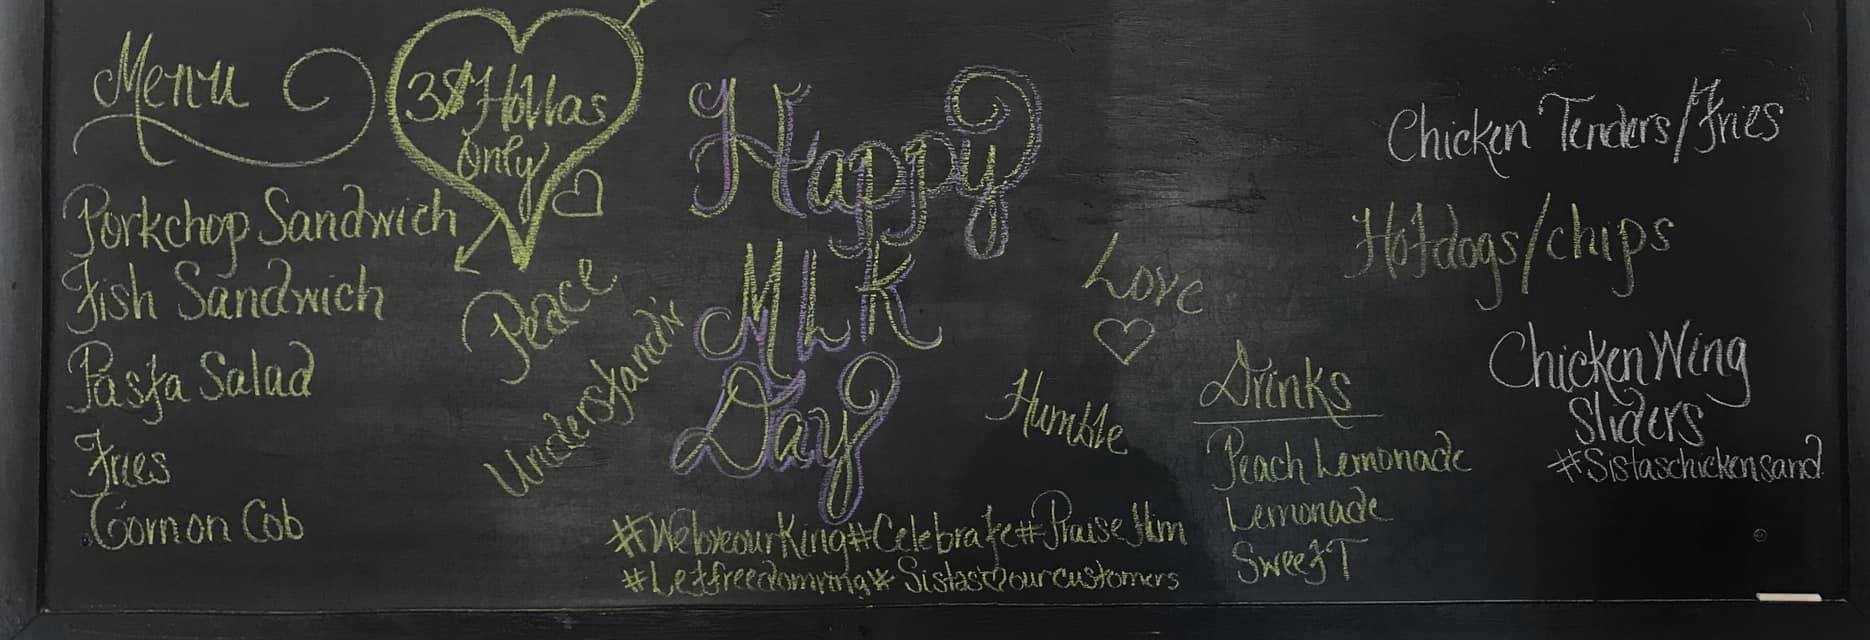 Menu
3$ Hollas
only
Porkchop Sandwich
Fish Sandwich
Pasta Salad
Fries
Corn on Cob
Peace
Understand'n
Happy
MLK
Day
#WeloveourKing#Celebrate#PraiseHim
#Letfreedomring#Sistas♡ourcustomers
Love
Humble
Drinks
Peach Lemonade
Lemonade
Sweet T
Chicken Tenders/Fries
Hotdogs/chips
Chicken Wing
Sliders
#Sistaschickensand